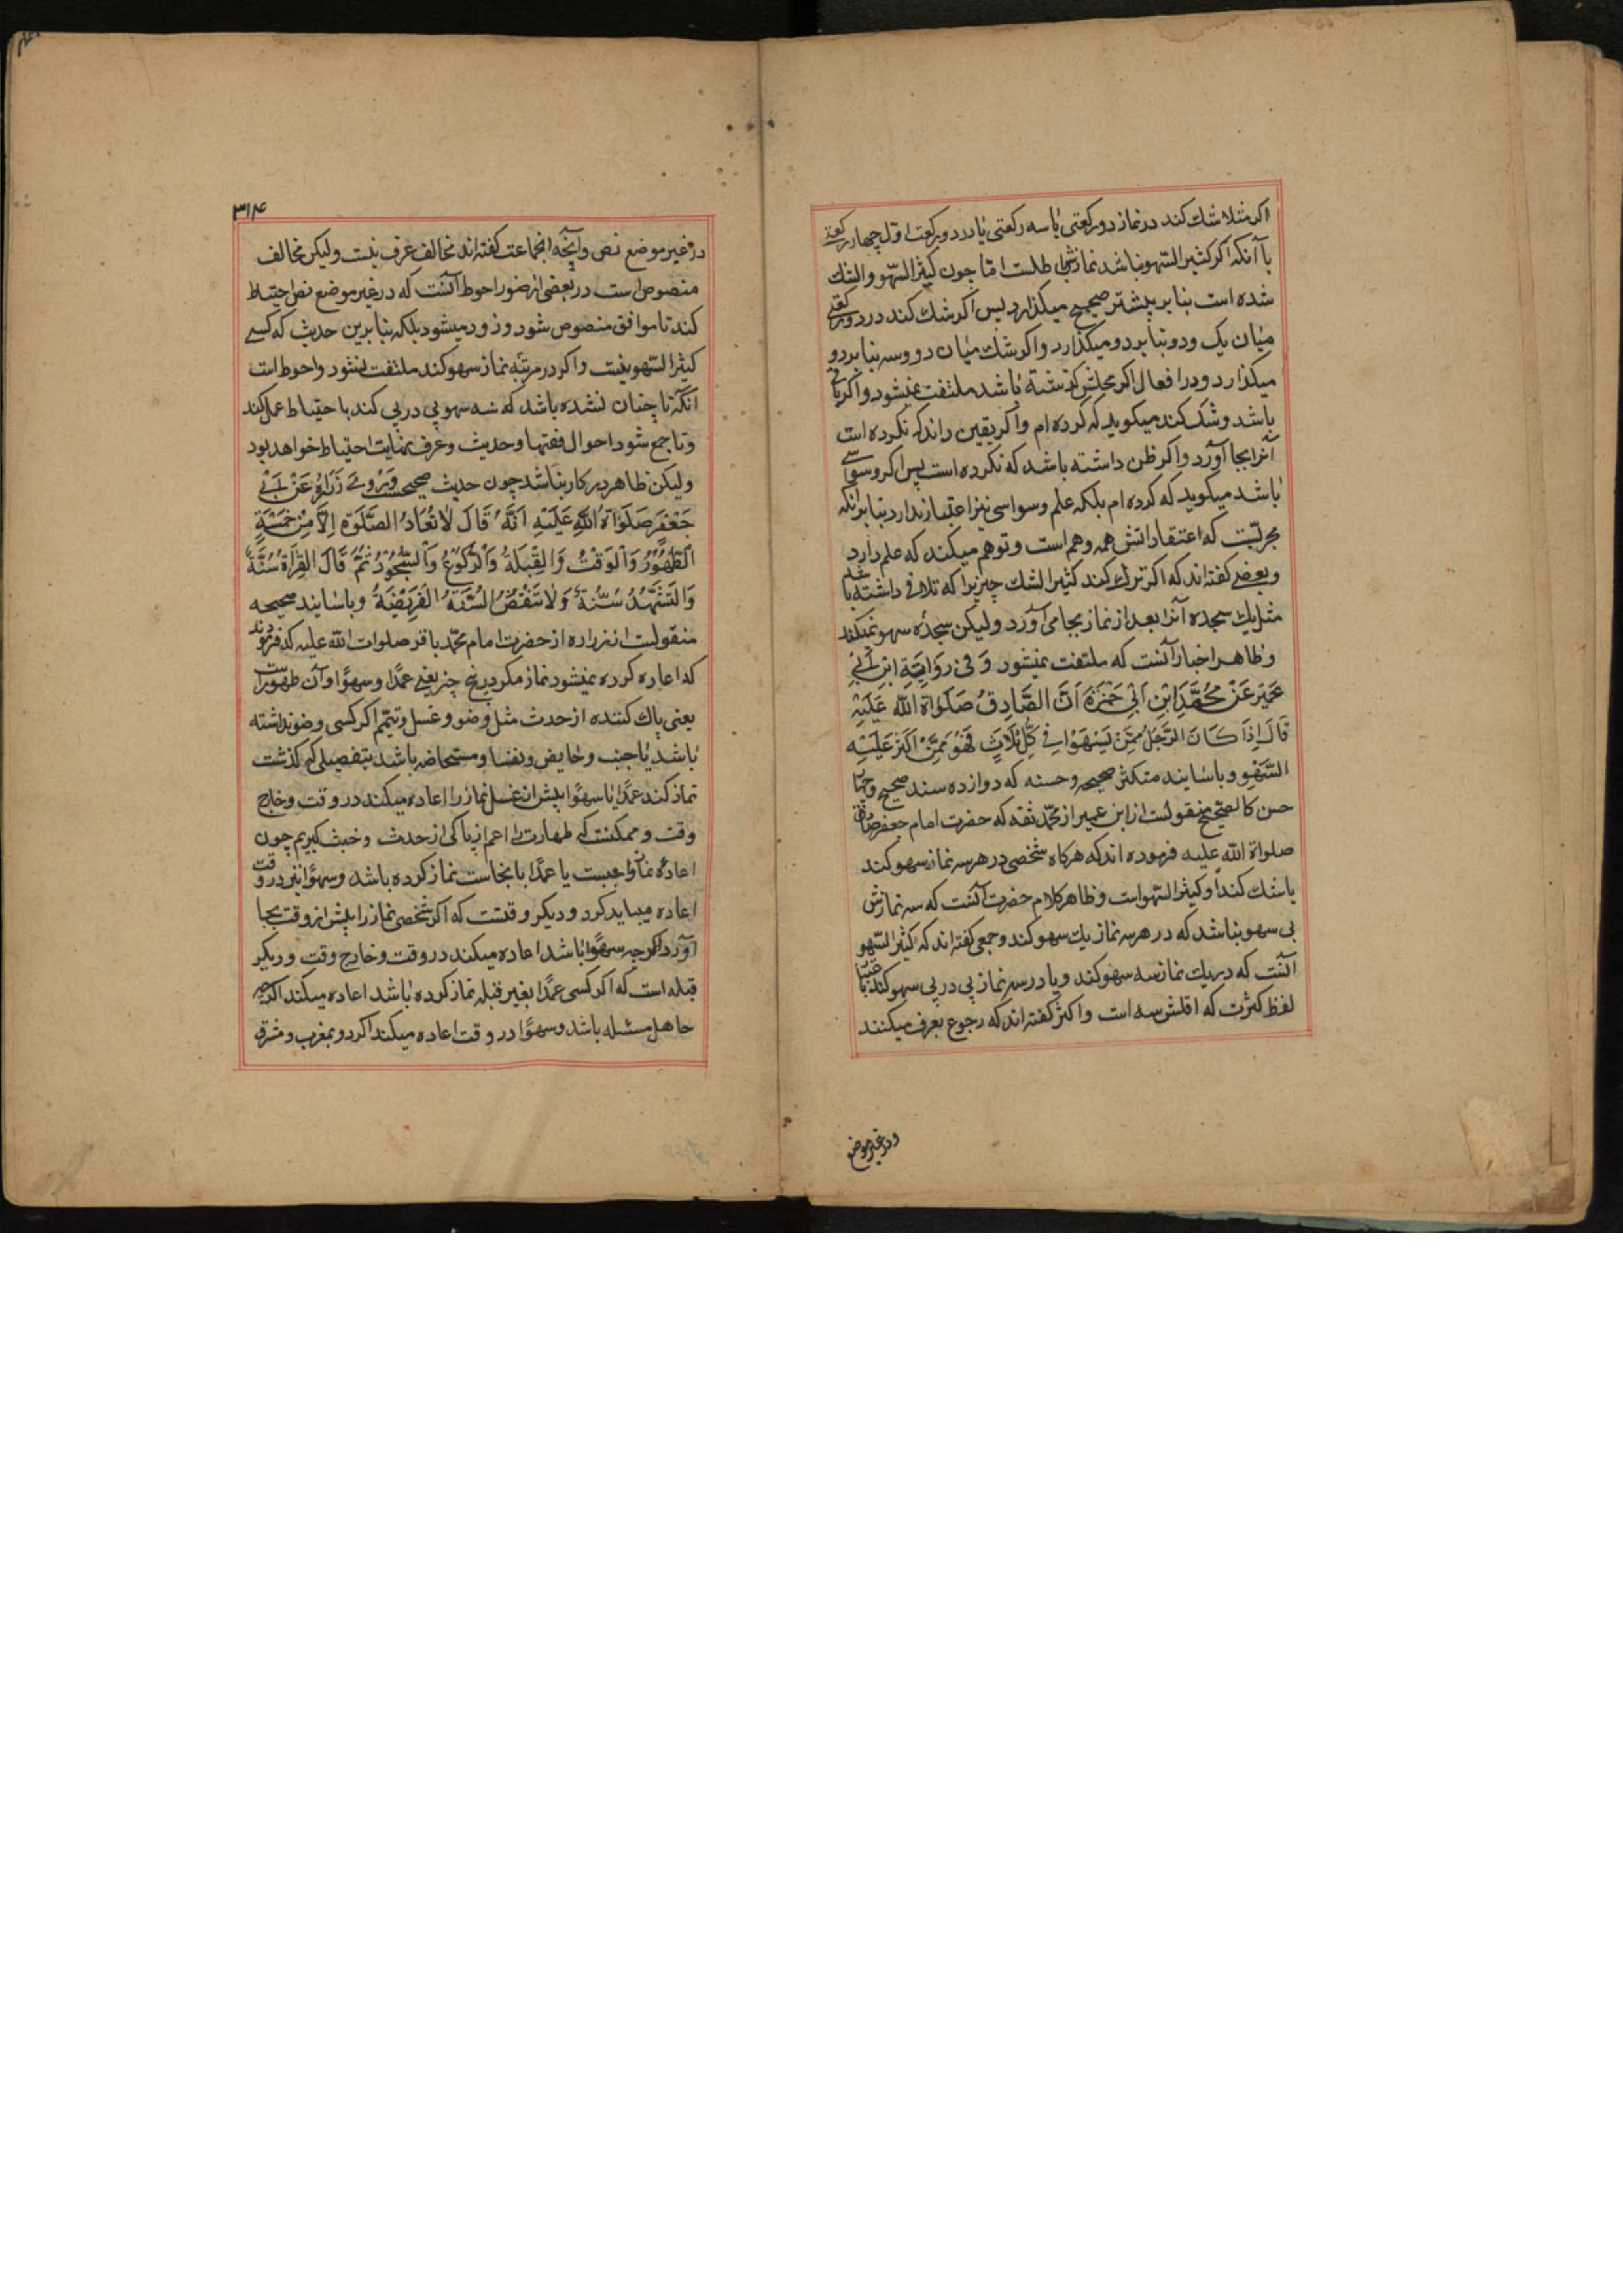 اكر مثلا شك كند در نماز دو ركعتى يا سه ركعتى يا در دو ركعت اول چهار ركعتى
با آنكه اكر كثير السهو نباشد نمازش باطلست اما چون كثير السهو والشك
شده است بنا بر بيشتر صحيح ميكذارد پس اكر شك كند در دو ركعتى
ميان يك و دو بنا بر دو ميكذارد واكر شك ميان دو وسه بنا بر دو
ميكذارد ودر افعال اكر محلش كذشته باشد ملتفت نميشود واكر باقى
باشد وشك كند ميكويد كه كرده ام واكر يقين داند كه نكرده است
آنرا بجا آورد واكر ظن داشته باشد كه نكرده است پس اكر وسواسى
باشد ميكويد كه كرده ام بلكه علم وسواسى نيز اعتبار ندارد بنا بر آنكه
مجربست كه اعتقاداتش همه وهم است وتوهم ميكند كه علم دارد
وبعضى كفته اند كه اكر ترك كند كثير الشك چيزيرا كه تلافى داشته باشد
مثل يك سجده آنرا بعد از نماز بجا مى آورد وليكن سجده سهو نميكند
وظاهر اخبار آنست كه ملتفت نميشود وَفى رِوَايَةِ ابْنِ اَبى
عُمَيْر عَنْ مُحَمَّدِ ابْنِ اَبى حَمْزَةَ اَنَّ الصَّادِقَ صَلَوَاةُ اللّٰه عَلَيْهِ
قَالَ اِذَا كَانَ الرَّجُلُ مِمَّنْ يَسْهُوا فى كُلِّ ثَلَاثٍ فَهُوَ مِمَّنْ اَكْثَرَ عَلَيْهِ
السَّهْوُ وباسانيد متكثر صحيحه وحسنه كه دوازده سند صحيح
حسن كالصحيح منقولست از ابن عمير از محمد ثقه كه حضرت امام جعفر صادق
صلواة اللّٰه عليه فرموده اند كه هركاه شخصى در هر سه نماز سهو كند
يا شك كند او كثير السهو است وظاهر كلام حضرت آنست كه سه نمازش
بى سهو نباشد كه در هر سه نماز يك سهو كند وجمعى كفته اند كه كثير السهو
آنست كه در يك نماز سه سهو كند ويا در سه نماز پى در پى سهو كند
لفظ كثرت كه اقلش سه است واكثر كفته اند كه رجوع بعرف ميكنند
ودر غير موضع
٣١٤
در غير موضع نص وآنچه انجماعت كفته اند مخالف عرف نيست وليكن مخالف
منصوص است در بعضى از صور احوط آنست كه در غير موضع نص احتياط
كند تا موافق منصوص شود وزود ميشود بلكه بنا برين حديث كه كسى
كثير السهو نيست واكر در مرتبه نماز سهو كند ملتفت نشود واحوط است
انكه تا چنان نشده باشد كه سه سهو پى در پى كند باحتياط عمل كند
وتا جمع شود احوال فقها وحديث وعرف نهايت احتياط خواهد بود
وليكن ظاهر در كار نباشد چون حديث صحيحست وَرَوىٰ زُرَارَةُ عَنْ اَبى
جَعْفَرٍ صَلَوَاةُ اللّٰهِ عَلَيْهِ اَنَّهُ قَالَ لَا تُعَادُ الصَّلَوٰة اِلَّا مِنْ خَمْسَةٍ
اَلطَّهُوْرُ وَالْوَقْتُ وَالْقِبْلَةُ وَالرُّكُوْعُ وَالسُّجُوْدُ ثُمَّ قَالَ القِرْاَةُ سُنَّةٌ
وَالتَّشَهُّدُ سُنَّةٌ وَلَا تَنْقُضُ السُّنَّةُ الْفَرِيْضَةَ وباسانيد صحيحه
منقولست از زراره از حضرت امام محمد باقر صلوات اللّٰه عليه كه فرمودند
كه اعاده كرده نميشود نماز مكر در پنج چيز يعنى عمدًا وسهوًا وآن طهورست
يعنى پاك كننده از حدث مثل وضو وغسل وتيمم اكر كسى وضو نداشته
باشد يا جنب وحايض ونفسا ومستحاضه باشد بتفصيلى كه كذشت
نماز كند عمدًا يا سهوًا پيش از غسل نماز را اعاده ميكند در وقت وخارج
وقت وممكنست كه طهارت را اعم از پاكى از حدث وخبث كيريم چون
اعاده نماز واجبست يا عمدًا با نجاست نماز كرده باشد وسهوًا نيز در وقت
اعاده ميبايد كرد وديكر وقتست كه اكر شخصى نماز را پيش از وقت بجا
آورد اكرچه سهوًا باشد اعاده ميكند در وقت وخارج وقت وديكر
قبله است كه اكر كسى عمدًا بغير قبله نماز كرده باشد اعاده ميكند اكرچه
جاهل مسئله باشد وسهوًا در وقت اعاده ميكند اكر رو بمغرب ومشرق